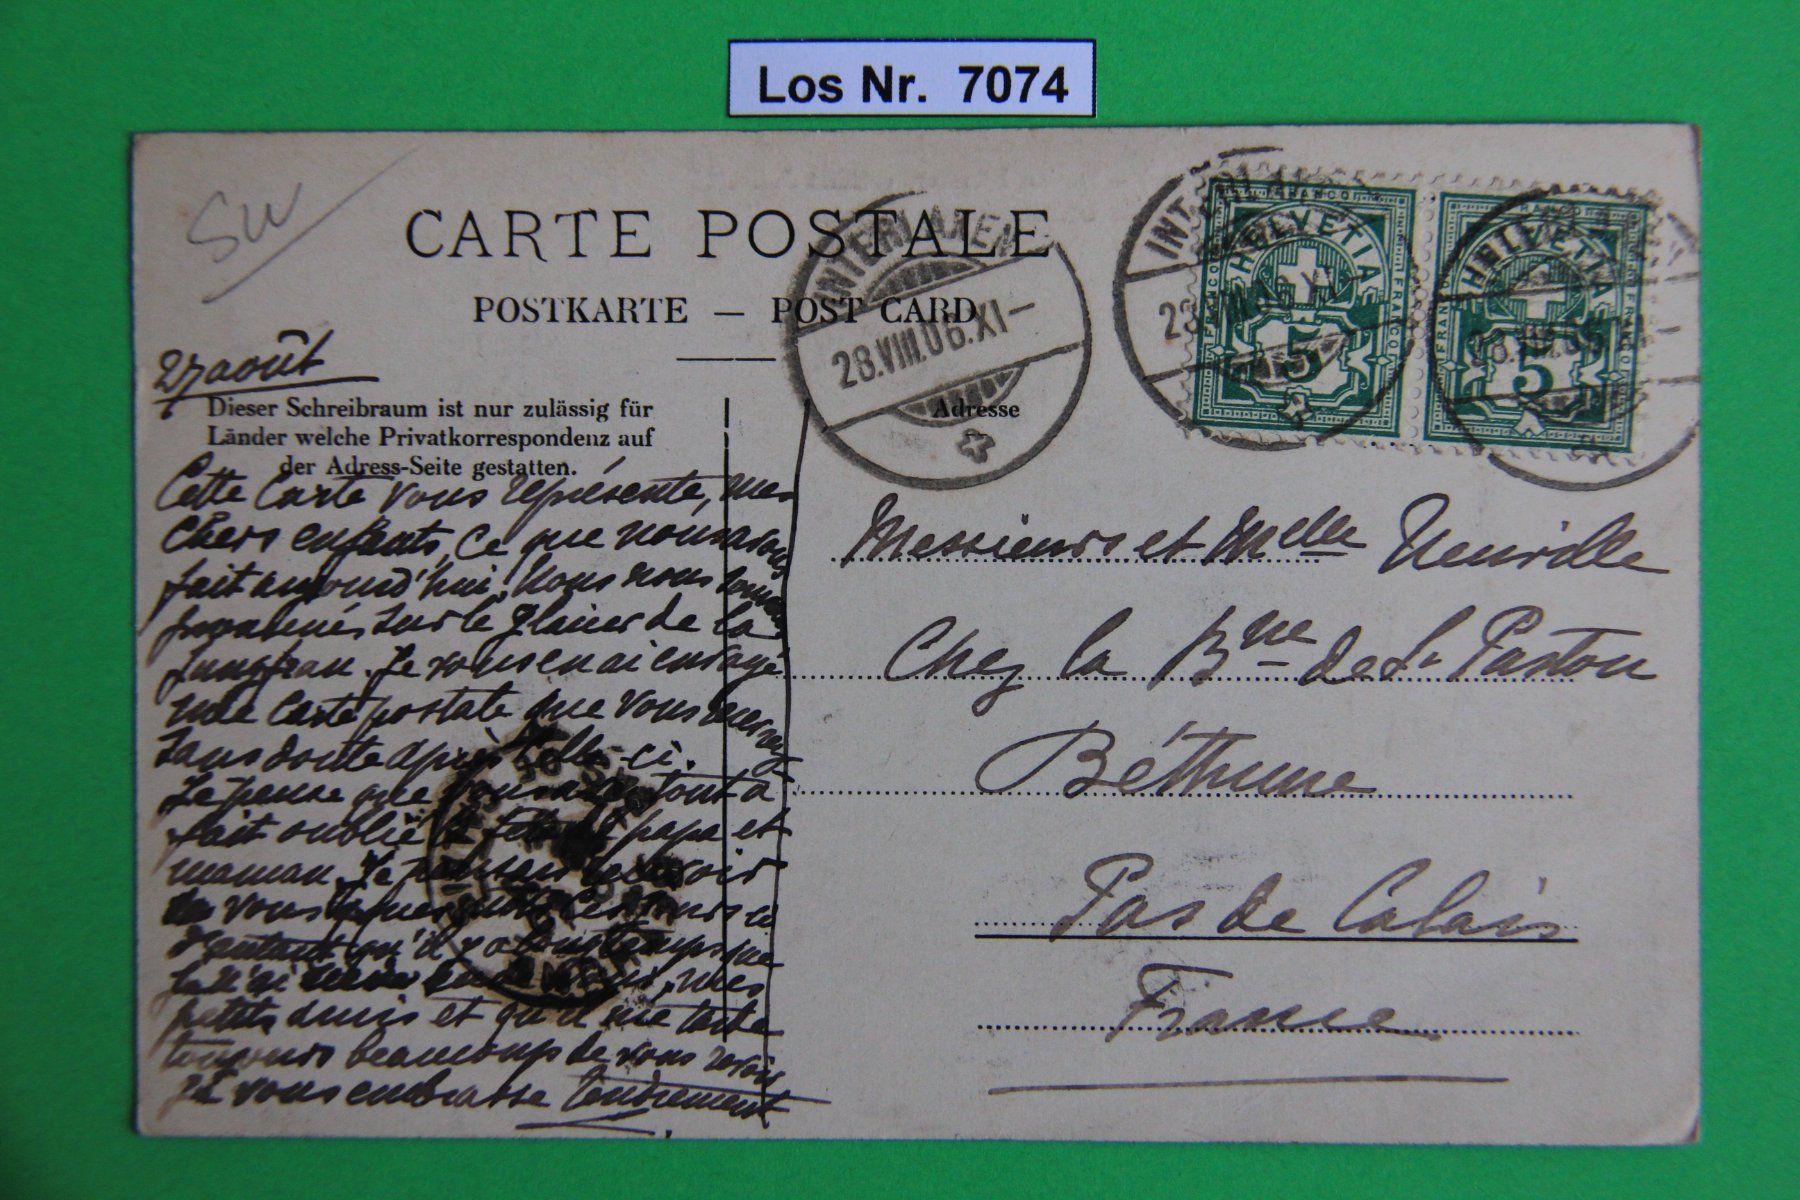 Los Nr. 7074
SW
CARTE POSTALE
POSTKARTE — POST CARD
INTERLAKEN
28.VIII.06.XI–
FRANCO
HELVETIA
5
FRANCO
HELVETIA
5
27 août
Dieser Schreibraum ist nur zulässig für
Länder welche Privatkorrespondenz auf
der Adress-Seite gestatten.
Adresse
Cette Carte vous représente, mes
chers enfants, ce que nous avons
fait aujourd'hui. Nous nous sommes
promenés sur le glacier de la
Jungfrau. Je vous en ai envoyé
une carte postale que vous recevrez
sans doute après celle-ci.
Je pense que vous avez tout à
fait oublié papa et
maman. Je
vous ces jours ci
d'autant qu'il y a longtemps que
je n'ai vous, mes
petits amis et qu'il me tarde
toujours beaucoup de vous revoir
Je vous embrasse tendrement
Messieurs et Melle Neuville
Chez la Bne de St Pastou
Béthune
Pas de Calais
France